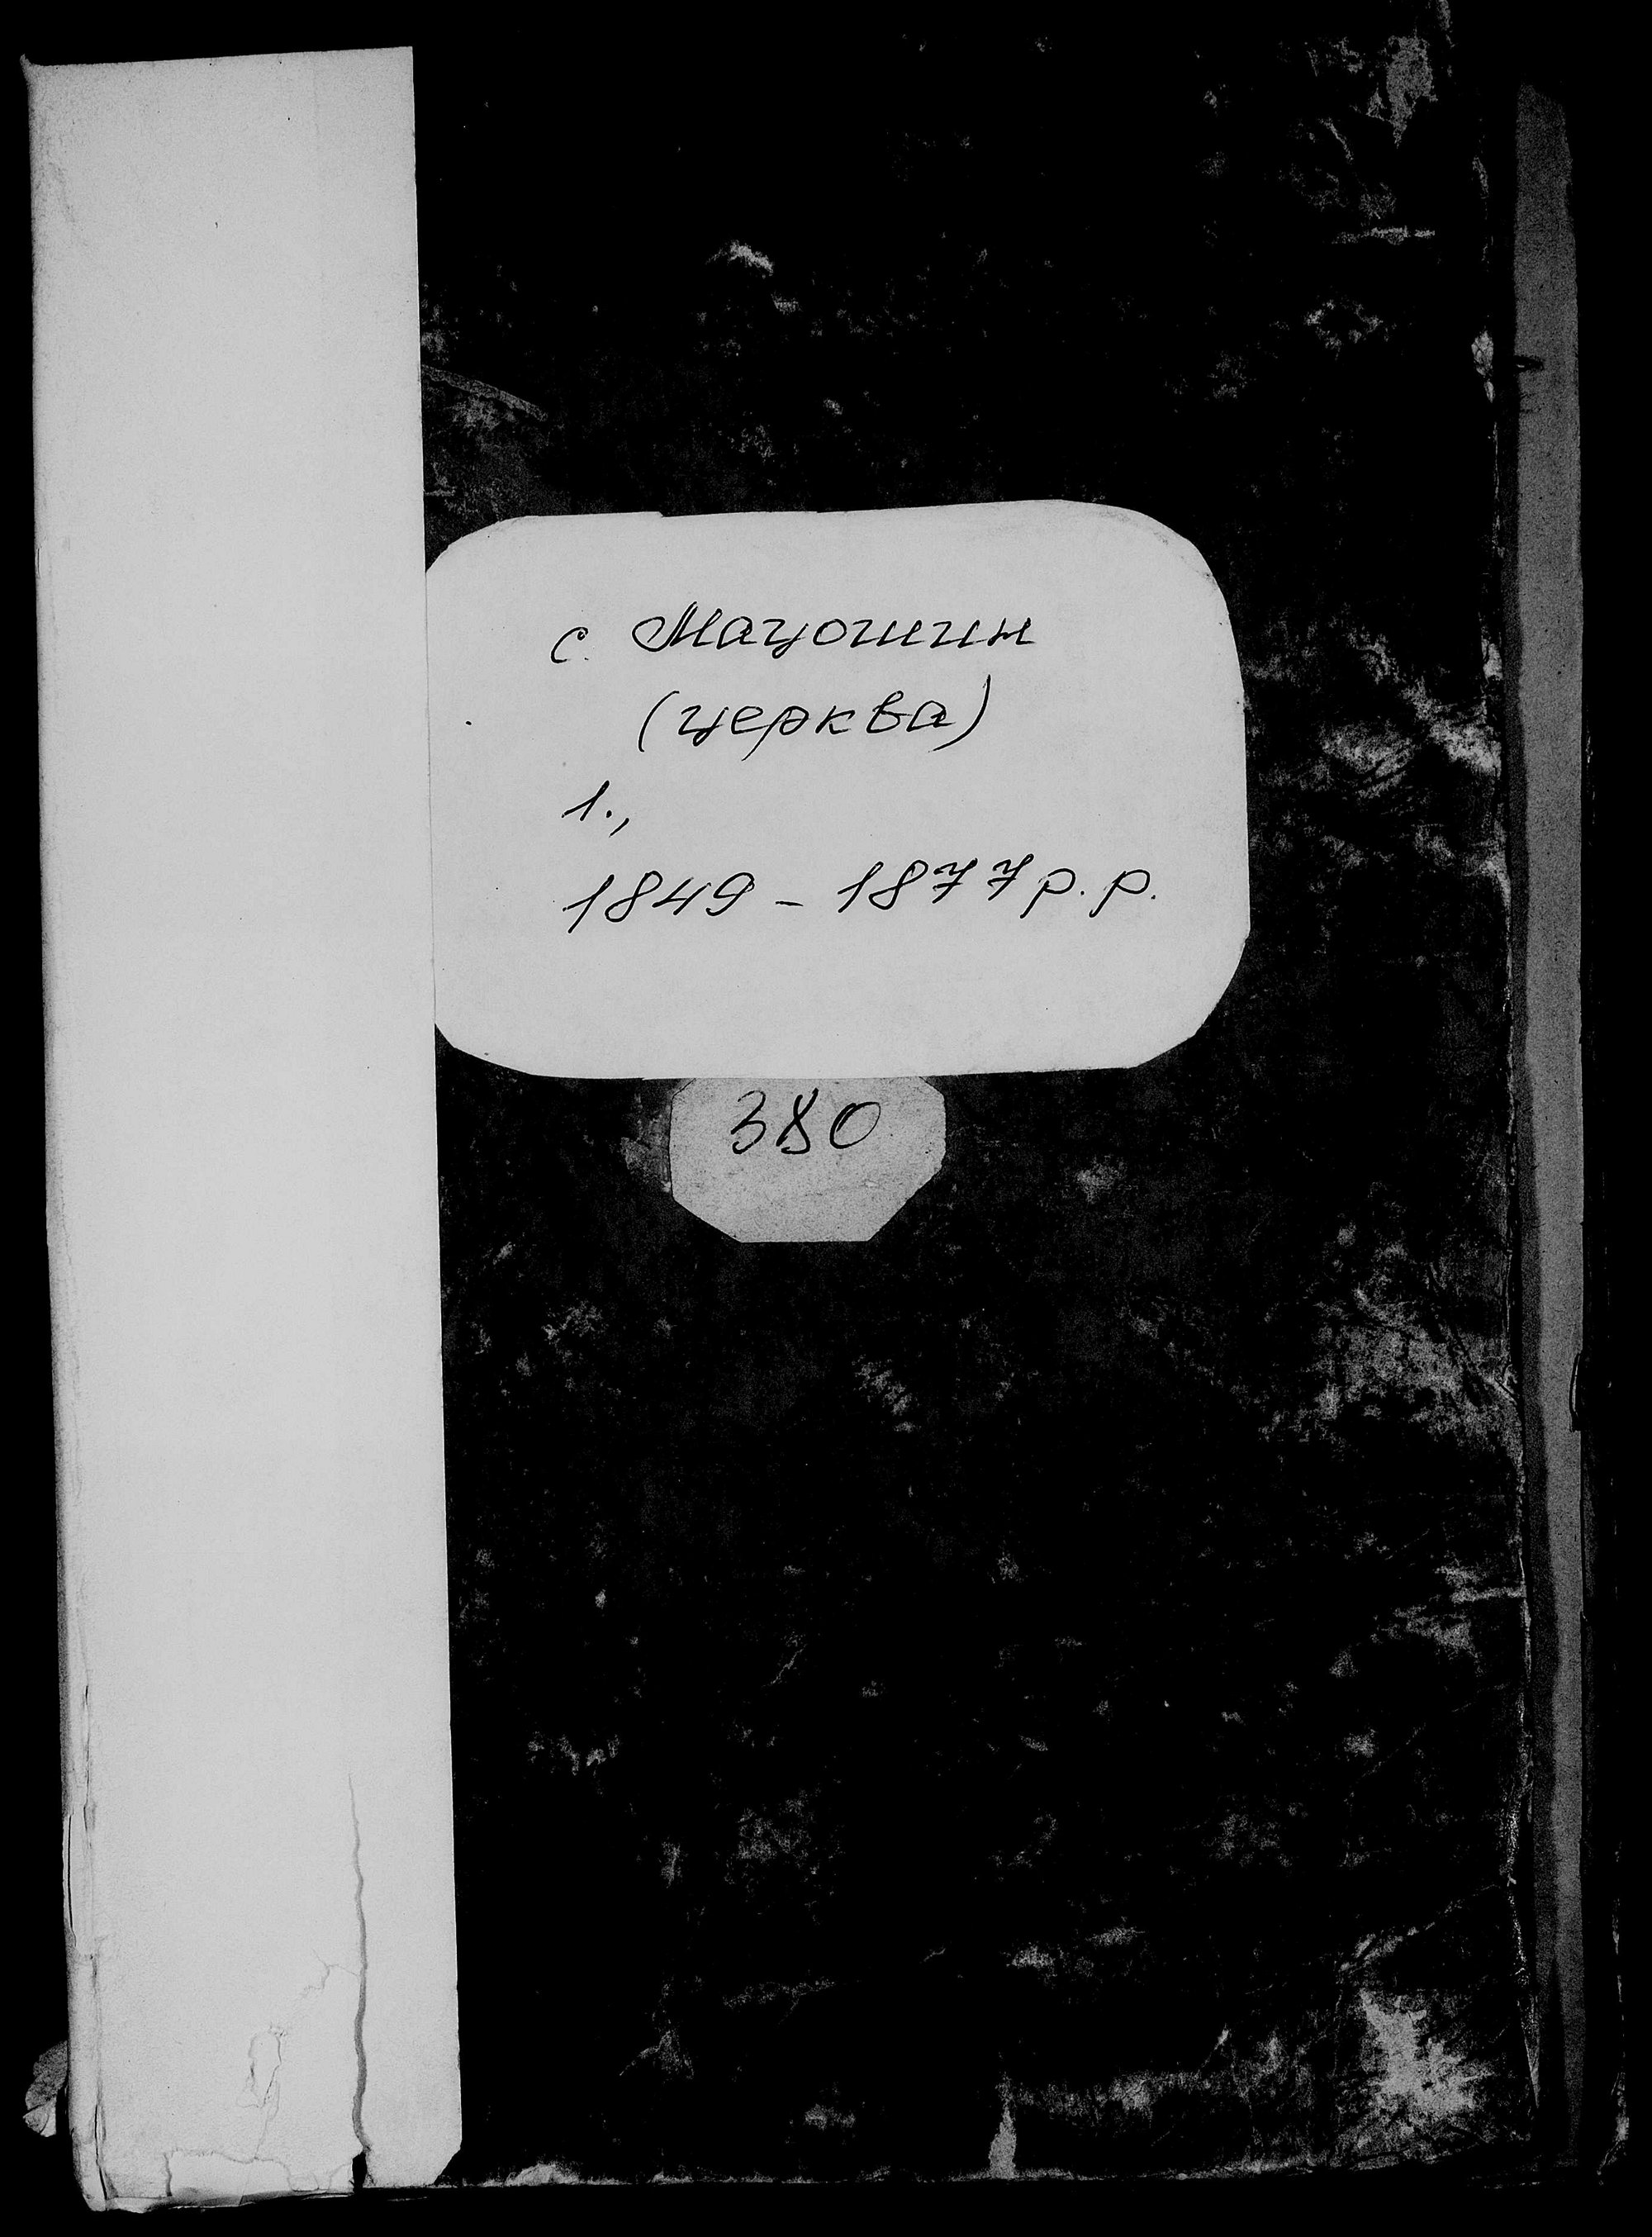 с. Мацошин
(церква)
1.,
1849 - 1877 р. р.
380